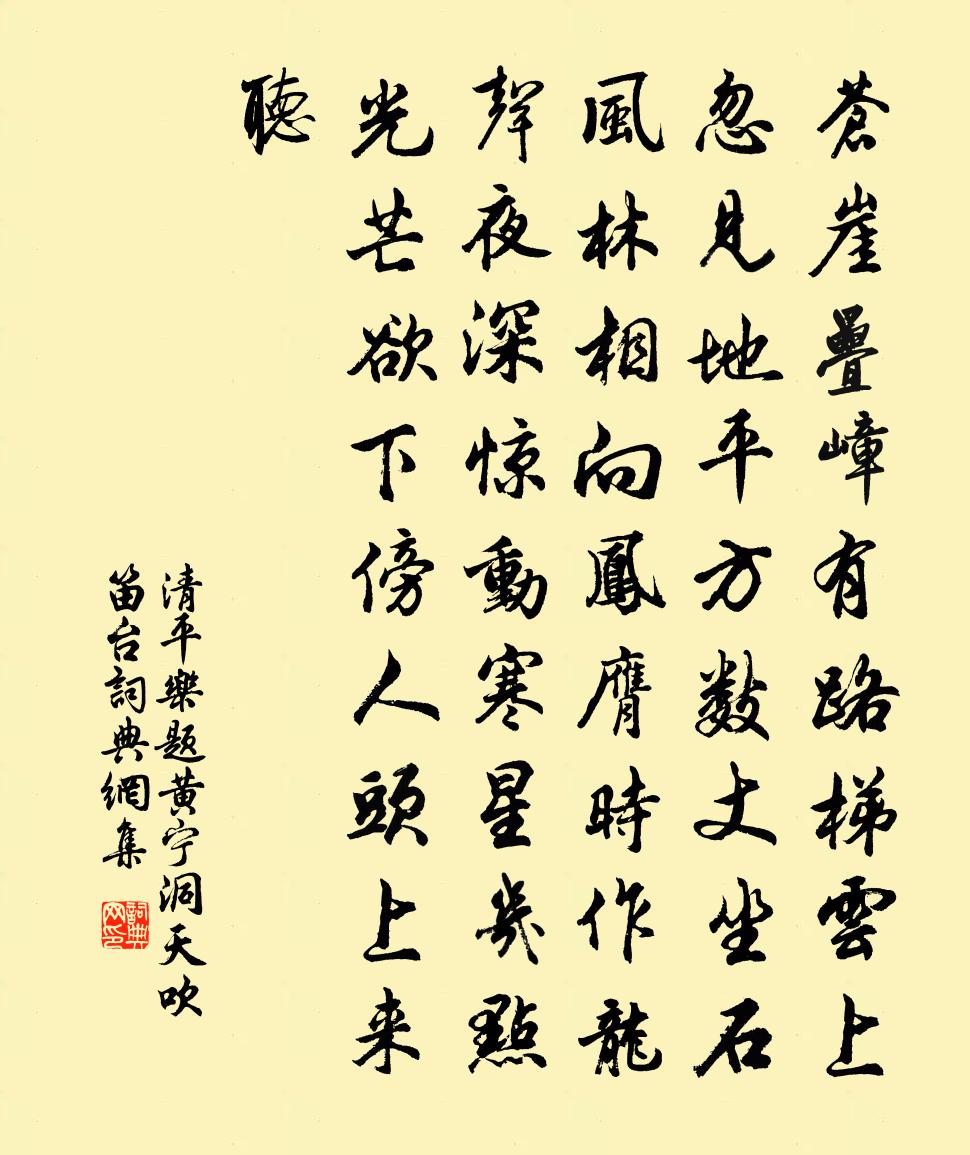 蒼崖疊嶂有路梯雲上
忽見地平方数丈坐石
風林相向鳳膺時作龍
聲夜深惊動寒星幾點
光芒欲下傍人頭上来
聽
清平樂题黄宁洞天吹
笛台詞典網集
詞典网印